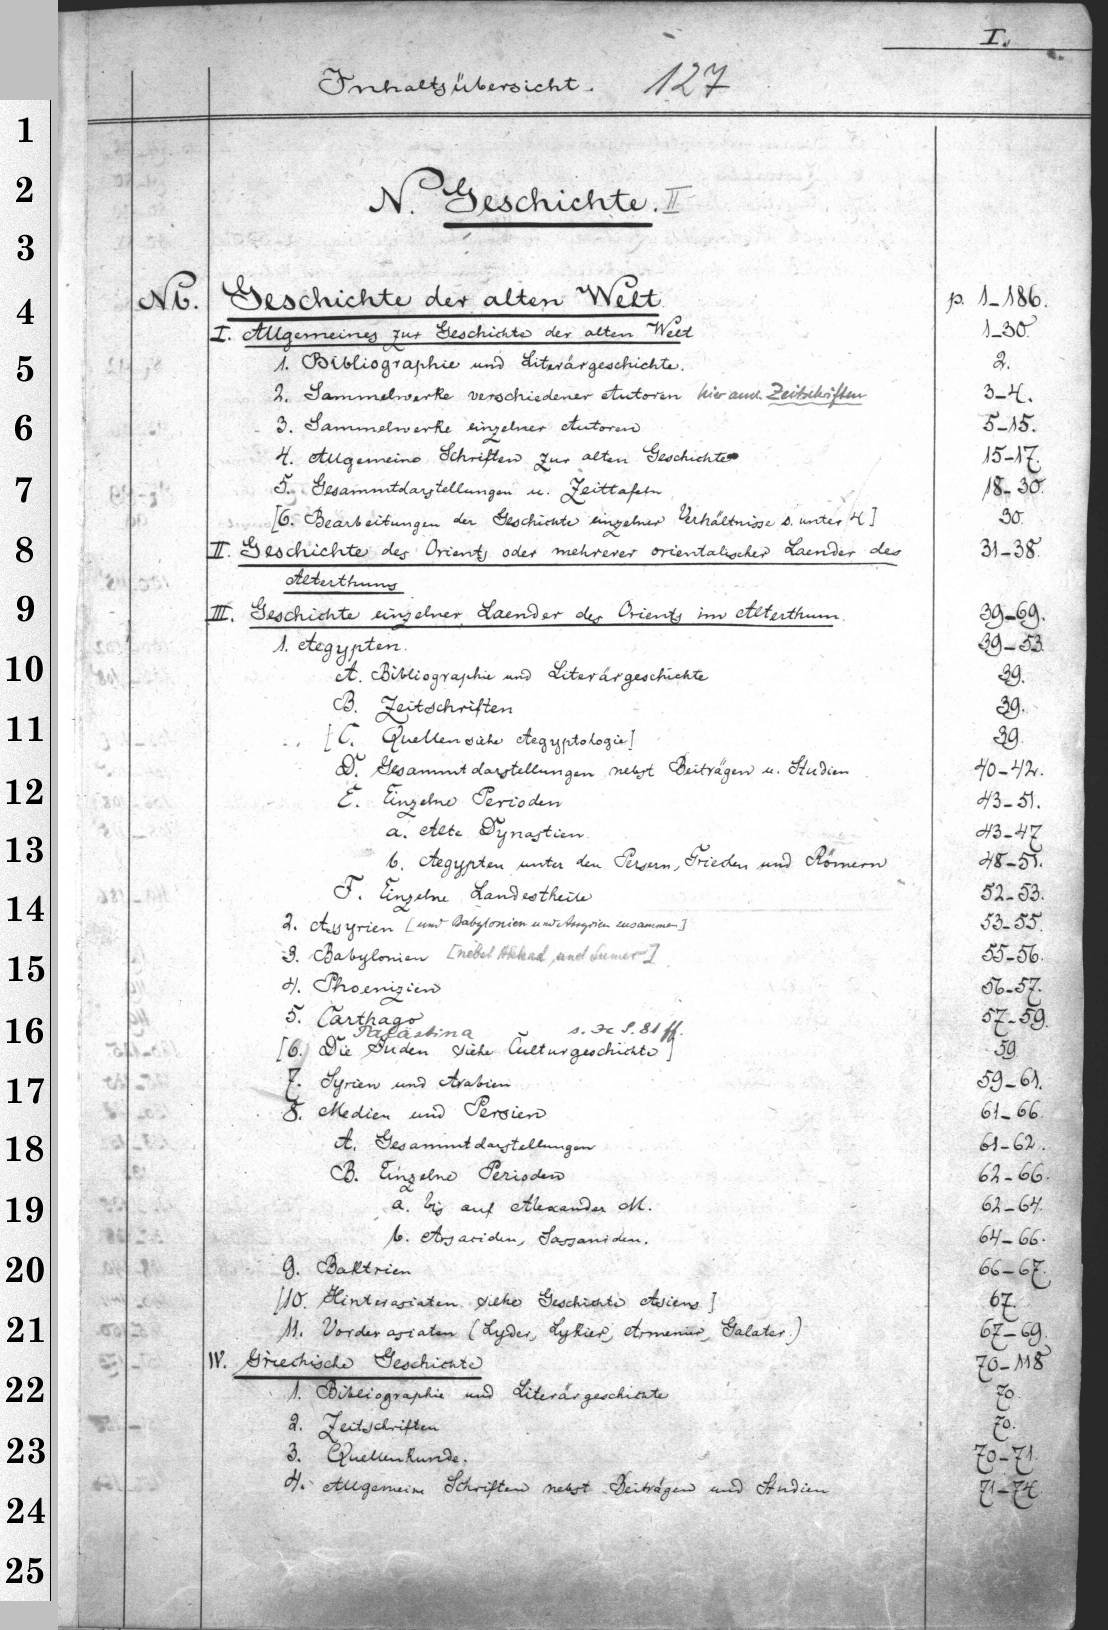 I.
Inhaltsübersicht. 127
N. Geschichte. II
Nb. Geschichte der alten Welt p. 1-186.
I. Allgemeines zur Geschichte der alten Welt 1-30.
1. Bibliographie und Literärgeschichte. 2.
2. Sammelwerke verschiedener Autoren hier auch Zeitschriften 3-4.
3. Sammelwerke einzelner Autoren 5-15.
4. Allgemeine Schriften zur alten Geschichte 15-17.
5. Gesammtdarstellungen u. Zeittafeln 18-30.
[6. Bearbeitungen der Geschichte einzelner Verhältnisse s. unter 4] 30.
II. Geschichte des Orients oder mehrerer orientalischer Laender des 31-38.
Alterthums
III. Geschichte einzelner Laender des Orients im Alterthum. 39-69.
1. Aegypten. 39-53.
A. Bibliographie und Literärgeschichte 39.
B. Zeitschriften 39.
[C. Quellen siehe Aegyptologie] 39.
D. Gesammtdarstellungen nebst Beiträgen u. Studien 40-42.
E. Einzelne Perioden 43-51.
a. Alte Dynastien. 43-47
b. Aegypten unter den Persern, Griechen und Römern 48-51.
F. Einzelne Landestheile 52-53.
2. Assyrien [und Babylonien und Assyrien zusammen] 53-55.
3. Babylonien [nebst Akkad und Sumer] 55-56.
4. Phoenizien 56-57.
5. Carthago 57-59.
Palästina s. S. 81 ff.
[6. Die Juden siehe Culturgeschichte] 59
7. Syrien und Arabien 59-61.
8. Medien und Persien 61-66.
A. Gesammtdarstellungen 61-62.
B. Einzelne Perioden 62-66.
a. bis auf Alexander M. 62-64.
b. Arsaciden, Sassaniden. 64-66.
9. Baktrien 66-67.
[10. Hinterasiaten siehe Geschichte Asiens] 67.
11. Vorderasiaten (Lyder, Lykier, Armenier, Galater.) 67-69.
IV. Griechische Geschichte 70-118
1. Bibliographie und Literärgeschichte 70.
2. Zeitschriften 70.
3. Quellenkunde. 70-71.
4. Allgemeine Schriften nebst Beiträgen und Studien 71-74.
1
2
3
4
5
6
7
8
9
10
11
12
13
14
15
16
17
18
19
20
21
22
23
24
25